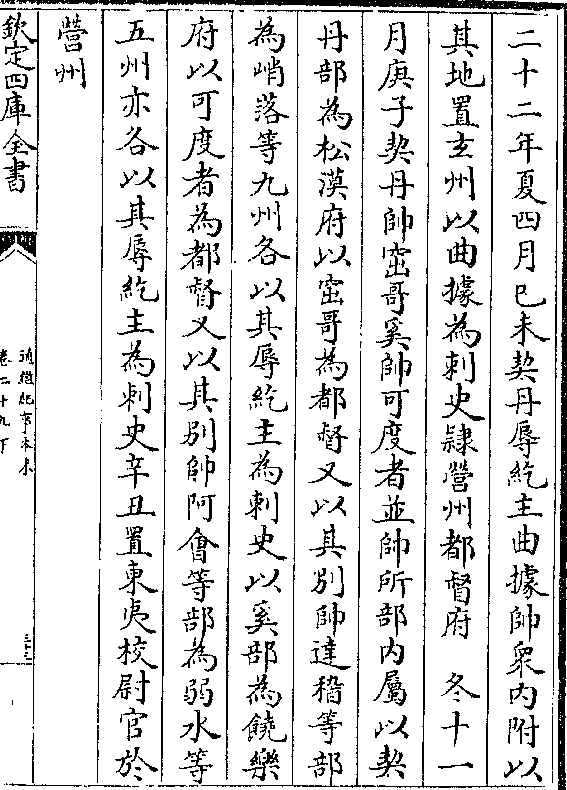 二十二年夏四月已未契丹辱紇主曲據帥衆内附以
其地置玄州以曲據為刺史隸營州都督府　冬十一
月庚子契丹帥窋哥奚帥可度者並帥所部内屬以契
丹部為松漠府以窋哥為都督又以其別帥達稽等部
為峭落等九州各以其辱紇主為刺史以奚部為饒樂
府以可度者為都督又以其別帥阿會等部為弱水等
五州亦各以其辱紇主為刺史辛丑置東夷校尉官於
營州
欽定四庫全書
通鑑紀事本末
卷二十九下
三十三